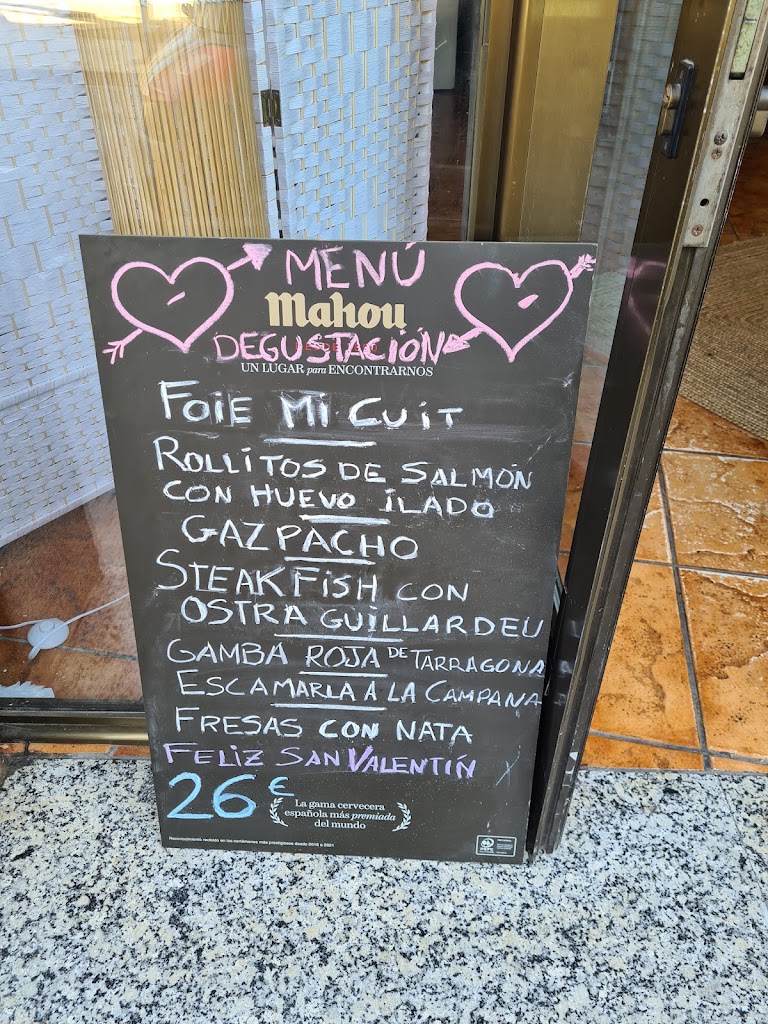 MENÚ
Mahou
DEGUSTACIÓN
UN LUGAR para ENCONTRARNOS
FOIE MI CUIT
ROLLITOS DE SALMÓN
CON HUEVO ILADO
GAZPACHO
STEAK FISH CON
OSTRA GUILLARDEU
GAMBA ROJA DE TARRAGONA
ESCAMARLA A LA CAMPANA
FRESAS CON NATA
FELIZ SAN VALENTÍN
26 €
La gama cervecera
española más premiada
del mundo
Reconocimiento recibido en los certámenes más prestigiosos desde 2018 a 2021